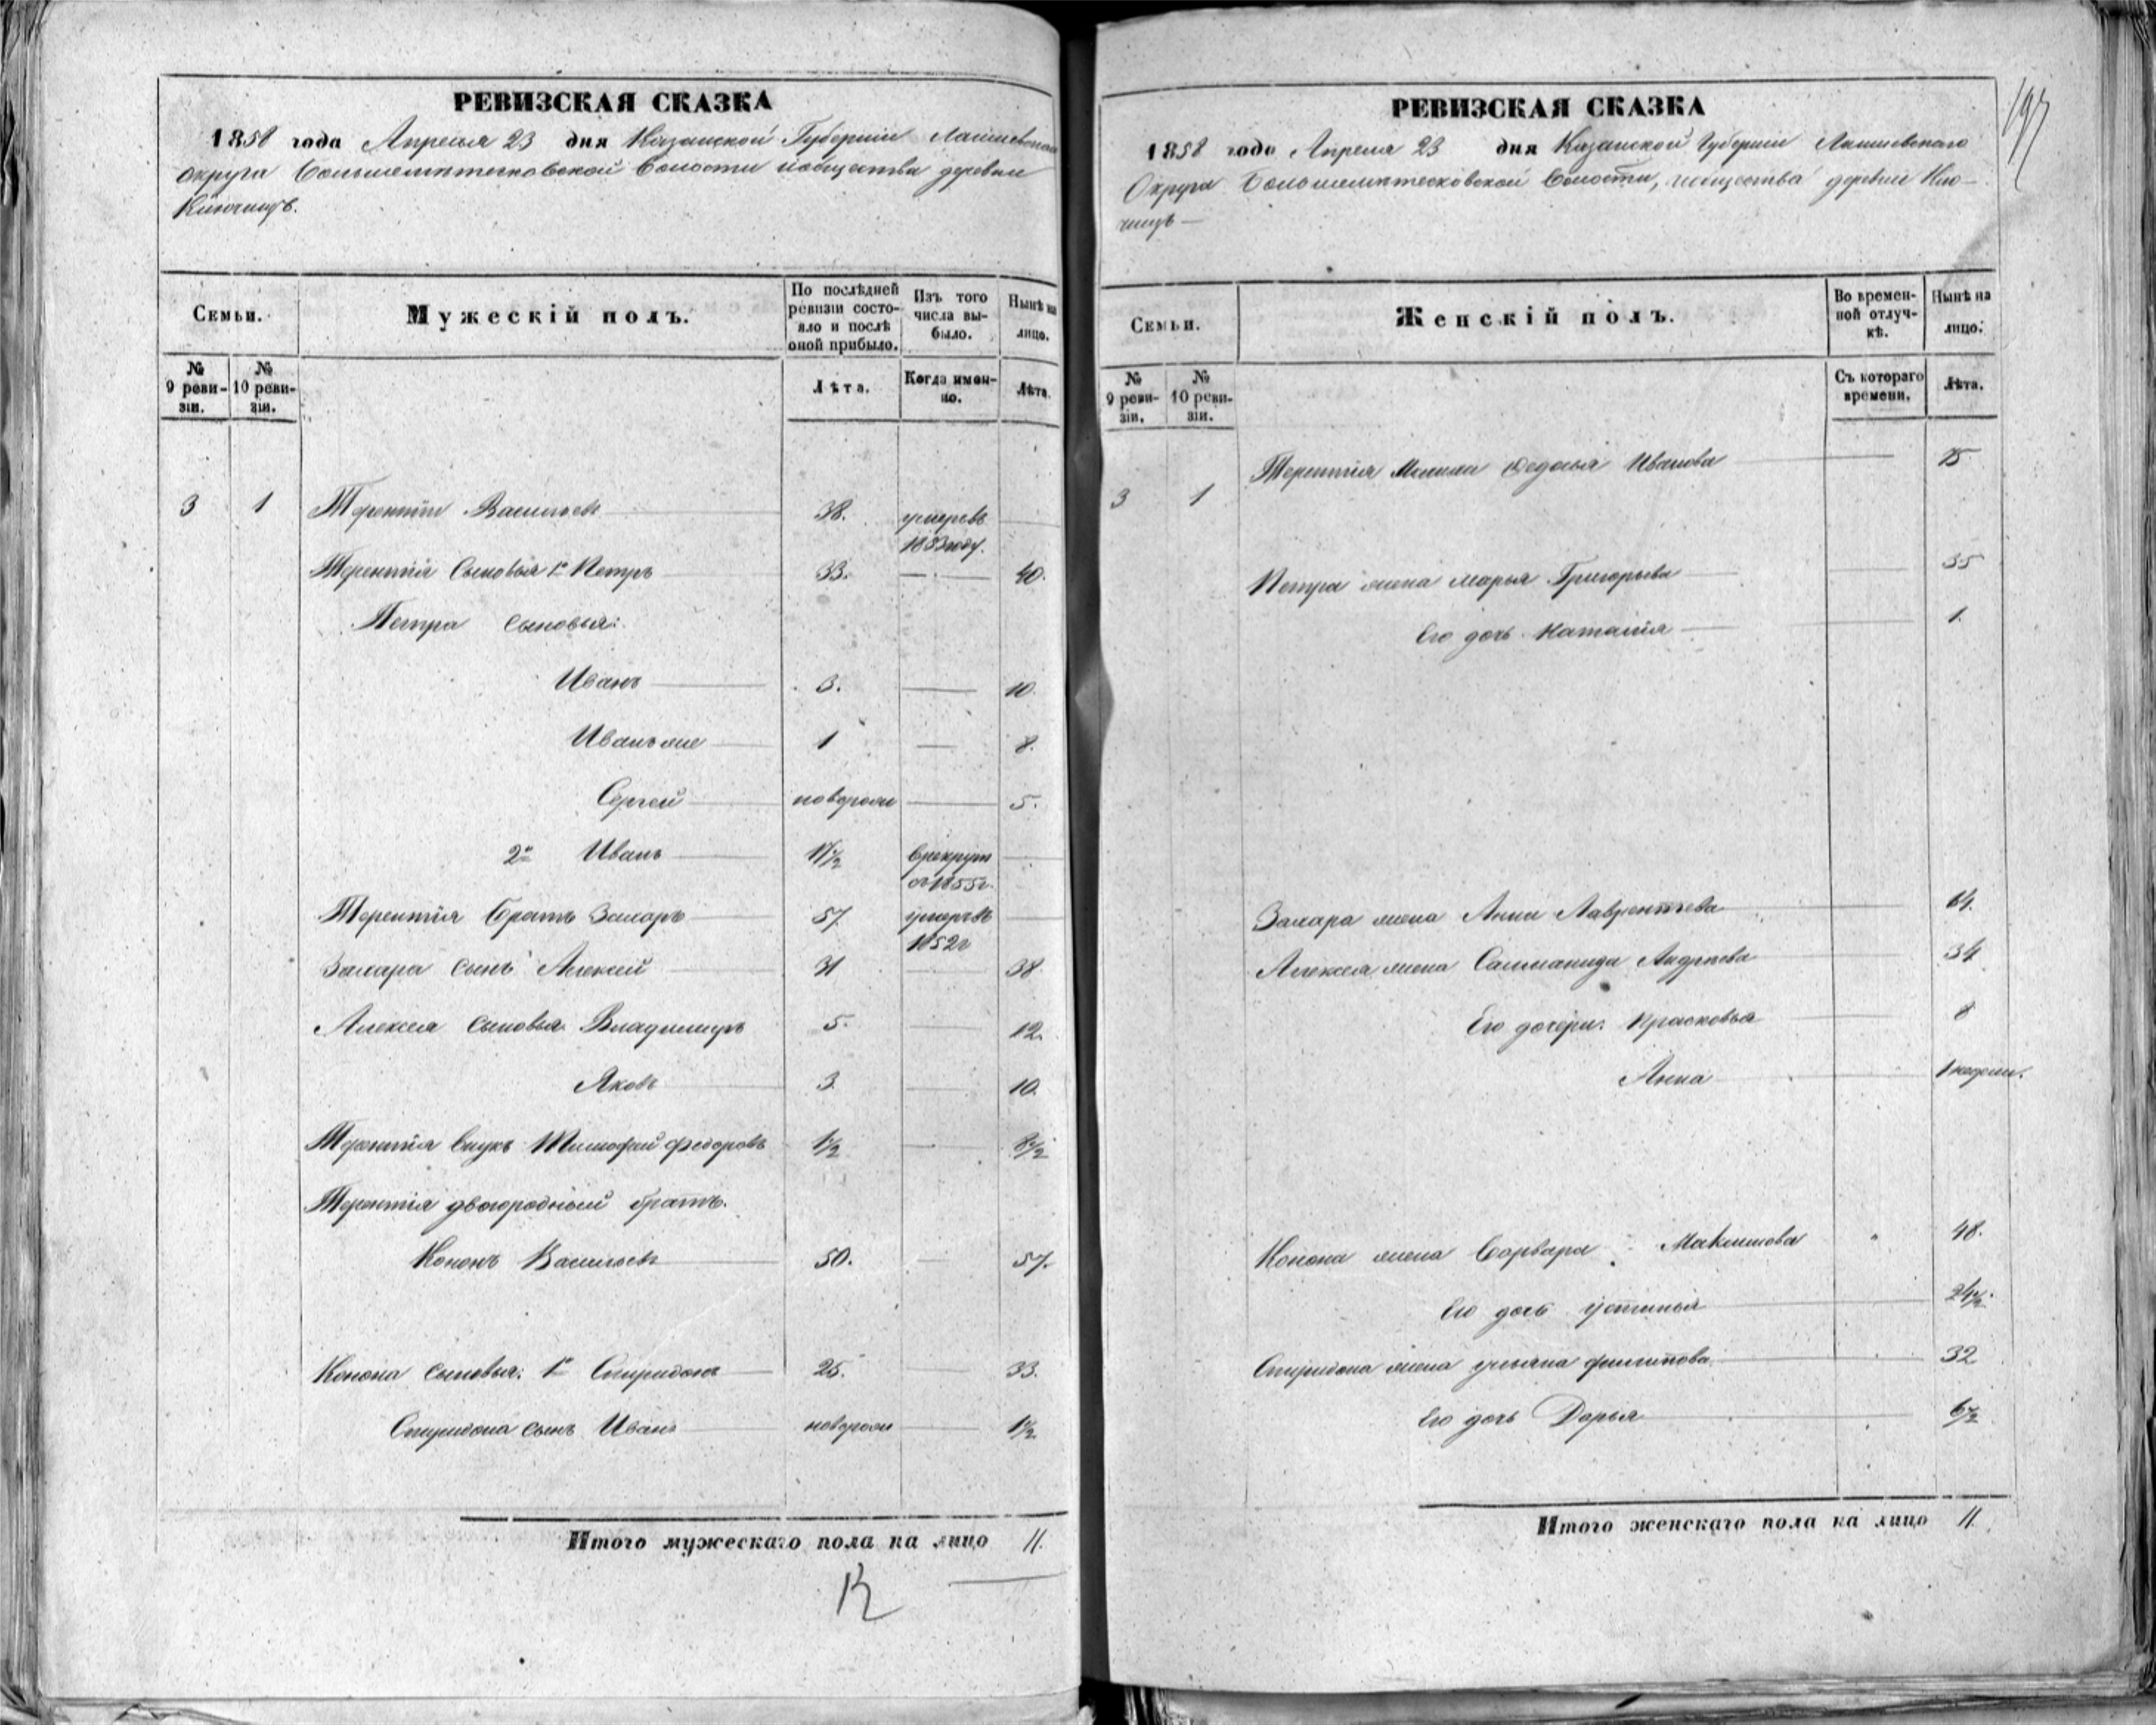 РЕВИЗСКАЯ СКАЗКА
1858 года Апреля 23 дня Казанской Губернiи Лаишевскаго
округа волости и общества деревни
Ключищъ.
Семьи.
Мужескiй полъ.
По послѣдней ревизiи состояло и послѣ оной прибыло.
Изъ того числа выбыло.
Нынѣ на лицо.
№ 9 ревизiи.
№ 10 ревизiи.
Лѣта.
Когда именно.
Лѣта.
3 1 Терентiй Васильевъ 38. умеръ въ
1853 году.
Терентiя Сыновья 1й Петръ 33. 40.
Петра сыновья:
Иванъ 3. 10.
Иванъ же 1 8.
Сергей новорож 5.
2й Иванъ 17½ в рекрут
1855г.
Терентiя братъ Захаръ 57 умеръ въ
1852г
Захара сынъ Алексей 31 38
Алексея сыновья Владимиръ 5. 12.
Яковъ 3. 10.
Терентiя внукъ Тимофей Федоровъ 1½ 8½
Терентiя двоюродный братъ.
Кононъ Васильевъ 50. 57.
Конона сыновья: 1й Спиридонъ 25. 33.
Спиридона сынъ Иванъ новорож 1½
Итого мужескаго пола на лицо 11.
РЕВИЗСКАЯ СКАЗКА
197
1858 года Апреля 23 дня Казанской Губернiи Лаишевскаго
Округа волости, и общества деревни Клю-
чищъ
Семьи.
Женскiй полъ.
Во временной отлучкѣ.
Нынѣ на лицо.
№ 9 ревизiи.
№ 10 ревизiи.
Съ котораго времени.
Лѣта.
Терентiя Федосья Иванова
3 1
Петра жена Марья Григорьева 35
Его дочь Наталiя 1.
Захара жена Анна Лаврентьева
Алексея жена Андреева 34
Его дочери: Прасковья 8
Анна 1 недели.
Конона жена Варвара Максимова 48.
Его дочь Устинья 24½.
Спиридона жена Ульяна Филипова. 32
Его дочь Дарья 6½
Итого женскаго пола на лицо 11.